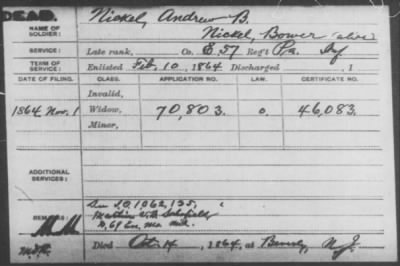 DEAD
NAME OF SOLDIER:
Nickel, Andrew B.
Nickel, Bower (alias)
SERVICE:
Late rank, Co. E 57 Reg't Pa. Inf
TERM OF SERVICE:
Enlisted Feb. 10, 1864 Discharged , 1
DATE OF FILING. CLASS. APPLICATION NO. LAW. CERTIFICATE NO.
Invalid,
1864 Nov. 1 Widow, 70,803. 0. 46,083.
Minor,
ADDITIONAL SERVICES:
REMARKS:
1,062,135,
Died Oct. 14, 1864, at Beverly, N.J.